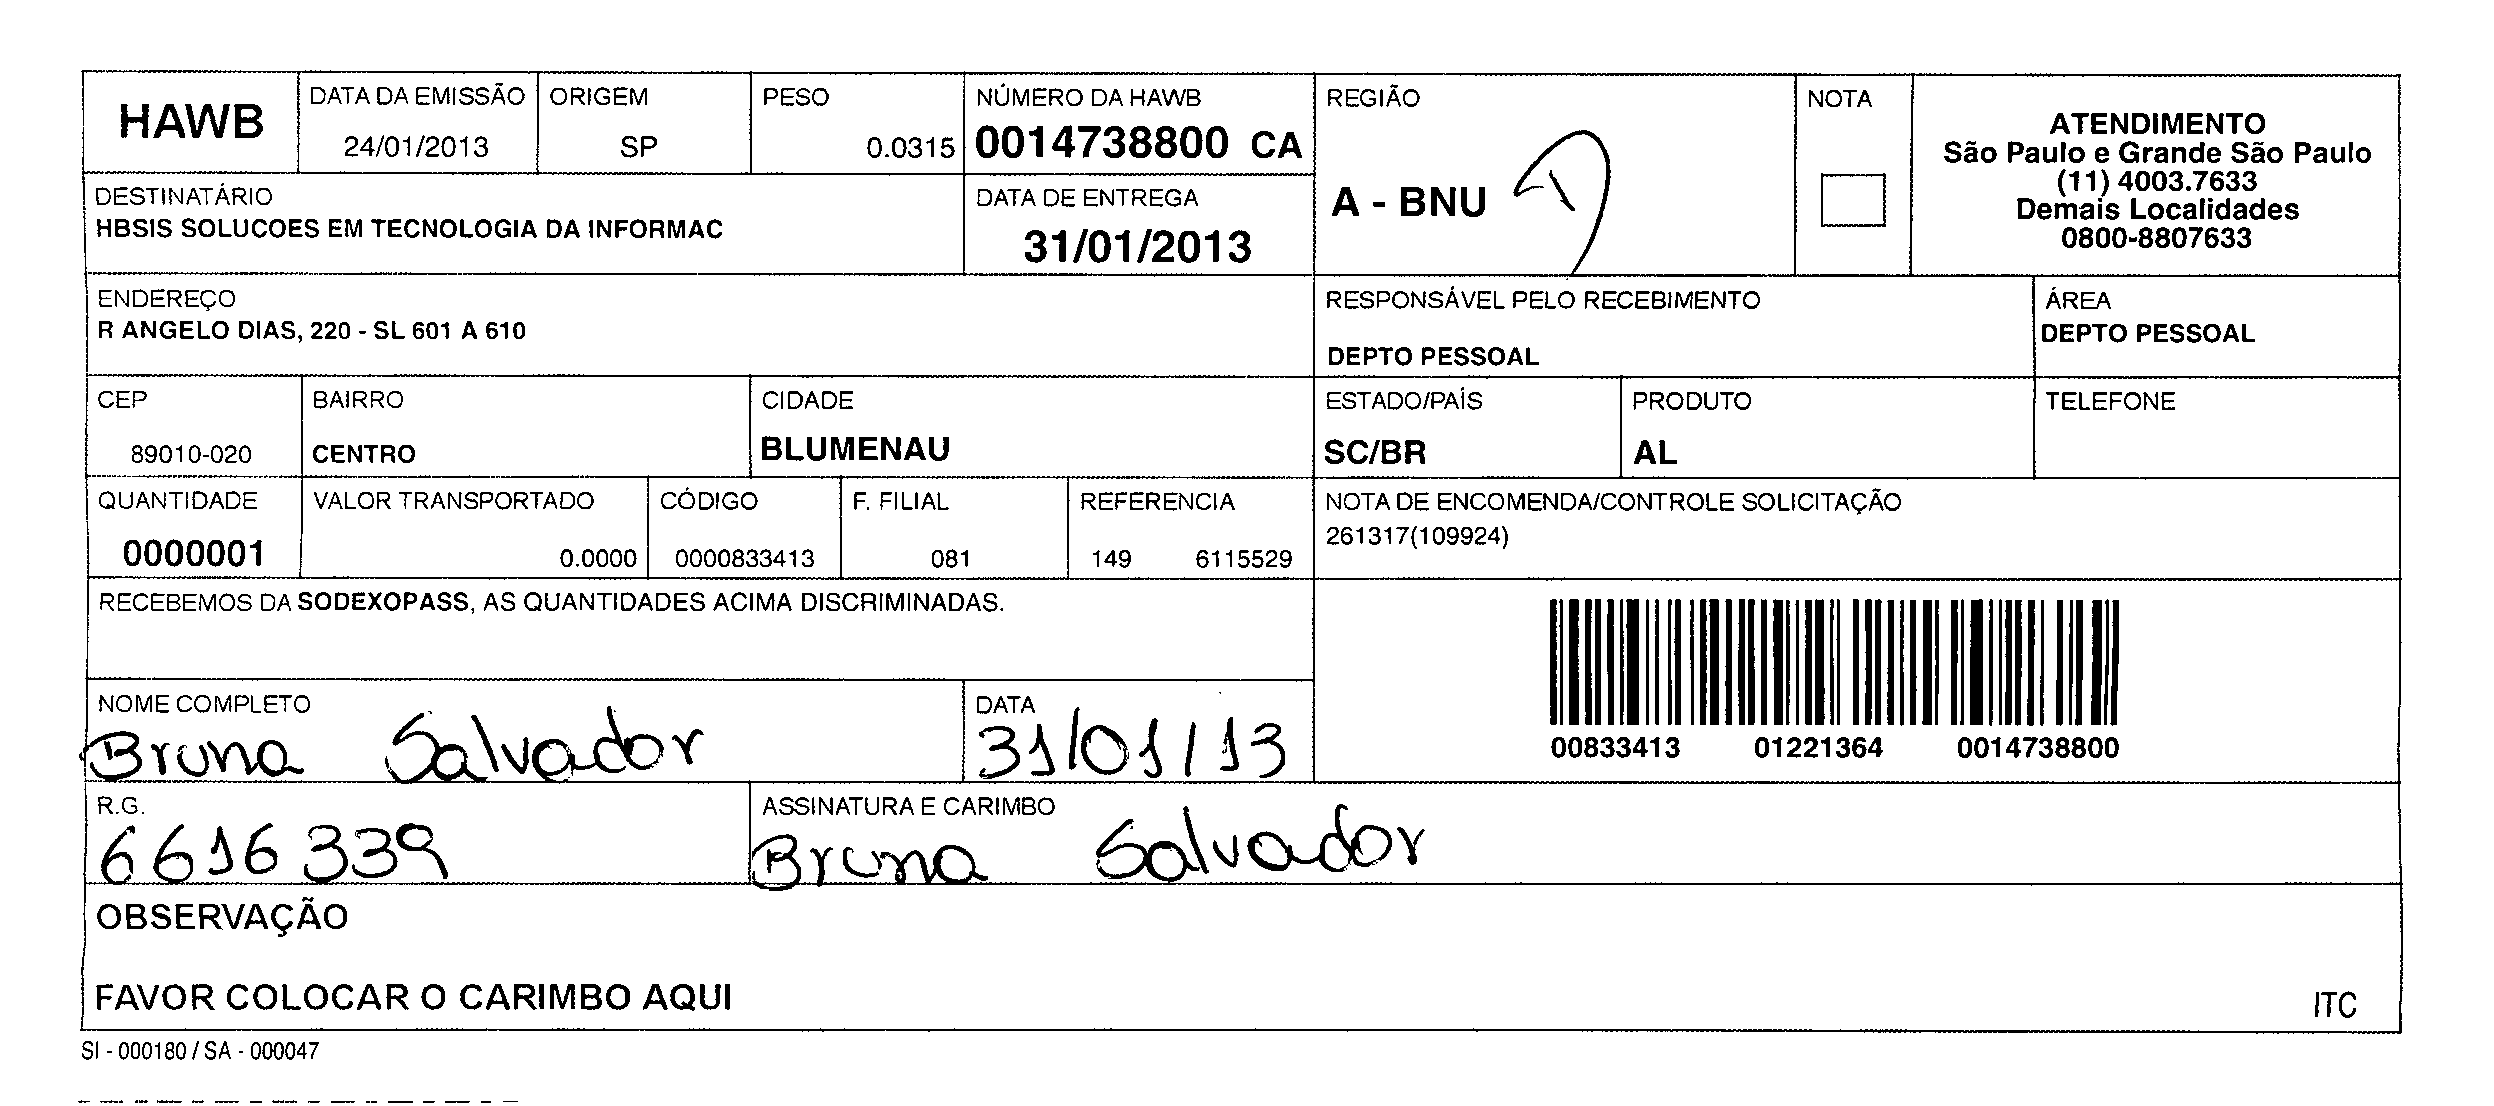 HAWB
DATA DA EMISSÃO
24/01/2013
ORIGEM
SP
PESO
0.0315
NÚMERO DA HAWB
0014738800 CA
REGIÃO
A - BNU
NOTA
ATENDIMENTO
São Paulo e Grande São Paulo
(11) 4003.7633
Demais Localidades
0800-8807633
DESTINATÁRIO
HBSIS SOLUCOES EM TECNOLOGIA DA INFORMAC
DATA DE ENTREGA
31/01/2013
ENDEREÇO
R ANGELO DIAS, 220 - SL 601 A 610
RESPONSÁVEL PELO RECEBIMENTO
DEPTO PESSOAL
ÁREA
DEPTO PESSOAL
CEP
89010-020
BAIRRO
CENTRO
CIDADE
BLUMENAU
ESTADO/PAÍS
SC/BR
PRODUTO
AL
TELEFONE
QUANTIDADE
0000001
VALOR TRANSPORTADO
0.0000
CÓDIGO
0000833413
F. FILIAL
081
REFERENCIA
149 6115529
NOTA DE ENCOMENDA/CONTROLE SOLICITAÇÃO
261317(109924)
RECEBEMOS DA SODEXOPASS, AS QUANTIDADES ACIMA DISCRIMINADAS.
00833413 01221364 0014738800
NOME COMPLETO
Bruna Salvador
DATA
31/01/13
R.G.
6616339
ASSINATURA E CARIMBO
Bruna Salvador
OBSERVAÇÃO
FAVOR COLOCAR O CARIMBO AQUI
ITC
SI - 000180 / SA - 000047